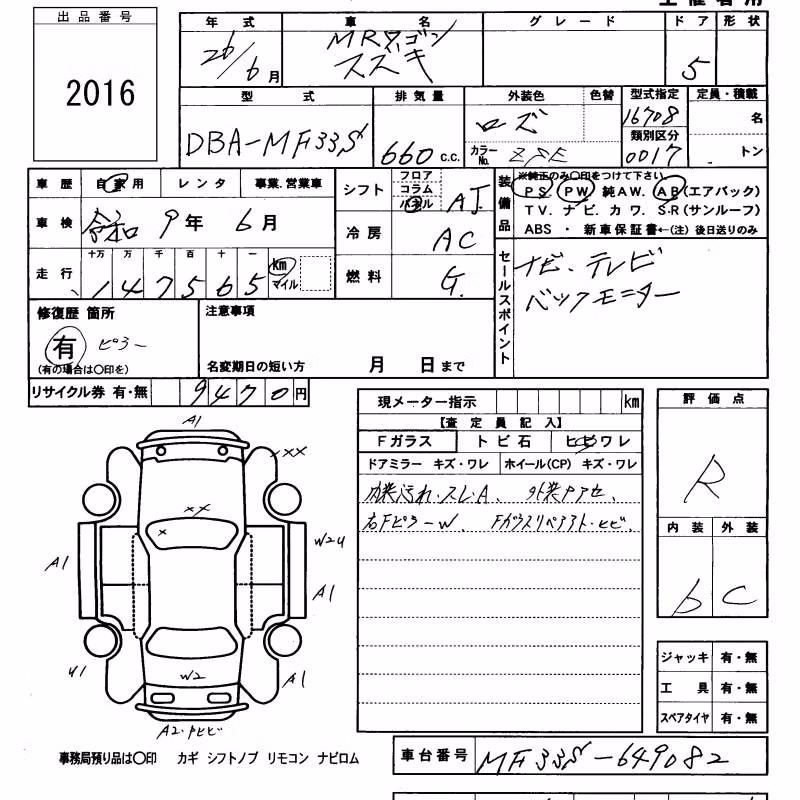 出品番号
2016
年式 車名 グレード ドア 形状
26/6月 MRワゴン スズキ 5
型式 排気量 外装色 色替 型式指定 定員・積載
DBA-MF33S 660 c.c. ロズ 16708 名
カラーNo. Z5E 類別区分 0017 トン
車歴 自家用 レンタ 事業.営業車
車検 令和 9年 6月
走行 十万 万 千 百 十 一 km マイル
147565
シフト フロア コラム パネル AT
冷房 AC
燃料 G.
装備品
※純正のみ〇印をつけて下さい
P S. P W 純A W. A B (エアバック)
T V. ナビ. カワ. S・R (サンルーフ)
ABS ・ 新車保証書←(注) 後日送りのみ
セールスポイント
ナビ、テレビ
バックモニター
修復歴 箇所
有 ピラー
(有の場合は〇印を)
注意事項
名変期日の短い方 月 日まで
リサイクル券 有・無 9470円
現メーター指示 km
【査定員記入】
Fガラス トビ石 ヒビワレ
ドアミラー キズ・ワレ ホイール(CP) キズ・ワレ
内装汚れ・スレ・A、
右Fピラ-W、 Fガラスリペアアト・ヒビ、
評価点
R
内装 外装
b C
ジャッキ 有・無
工具 有・無
スペアタイヤ 有・無
A1
XXX
XX
X
W2U
A1
A1
U1
W2
A1
A2・ﾅﾋﾋﾞ
事務局預り品は〇印 カギ シフトノブ リモコン ナビロム
車台番号 MF33S-649082